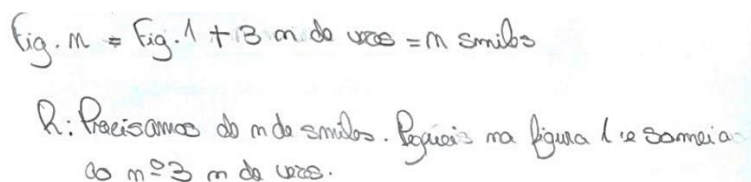 Fig. n = Fig. 1 + 3 n de vezes = n smiles
R: Precisamos do n de smiles. Peguei na figura 1 e somei a
ao nº 3 n de vezes.